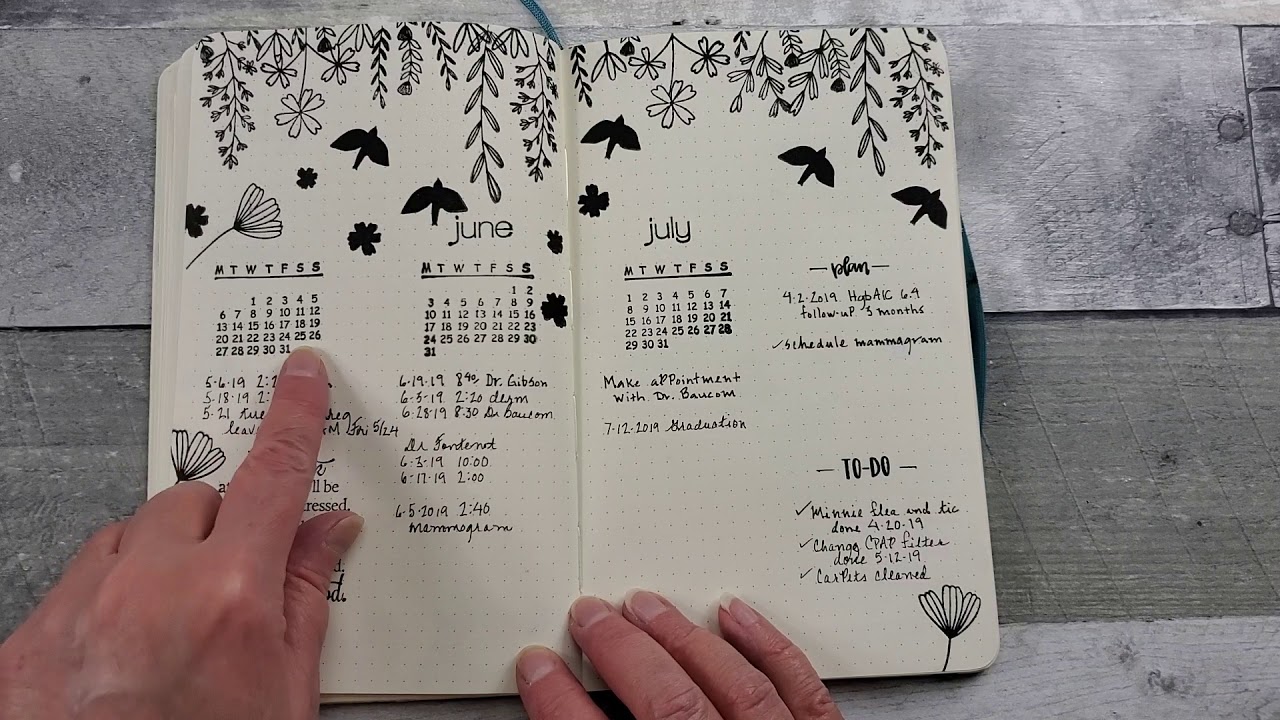 M T W T F S S
1 2 3 4 5
6 7 8 9 10 11 12
13 14 15 16 17 18 19
20 21 22 23 24 25 26
27 28 29 30 31
5-6-19
5-18-19
5-21
Fri 5/24
ll be
tressed.
june
M T W T F S S
1 2
3 4 5 6 7 8 9
10 11 12 13 14 15 16
17 18 19 20 21 22 23
24 25 26 27 28 29 30
31
6-19-19 8:40 Dr. Gibson
6-5-19 2:20 derm
6-28-19 8:30 Dr Baucom
Dr Fontenot
6-3-19 10:00
6-17-19 2:00
6-5-2019 2:40
mammogram
july
M T W T F S S
1 2 3 4 5 6 7
8 9 10 11 12 13 14
15 16 17 18 19 20 21
22 23 24 25 26 27 28
29 30 31
Make appointment
with Dr. Baucom
7-12-2019 Graduation
— plan —
4-2-2019 HgbA1C 6.4
follow-up 3 months
✓ schedule mammogram
— TO-DO —
✓ Minnie flea and tic
done 4-20-19
✓ Change CPAP filter
done 5-12-19
✓ Carpets cleaned